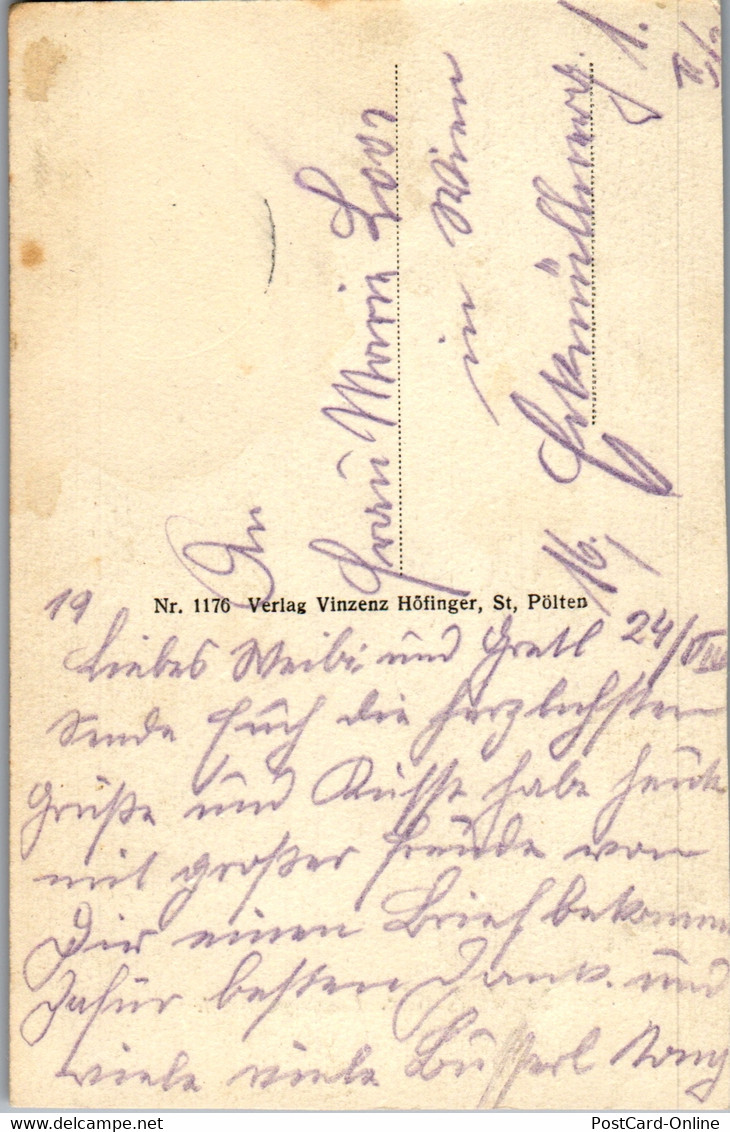 An
Frau Maria Loos
in Wien
16.
1.
Nr. 1176 Verlag Vinzenz Höfinger, St, Pölten
19 24/VIII
Liebes Weibi und Gretl
Sende Euch die herzlichsten
Grüße und Küsse habe heute
mit großer Freude von
Dir einen Brief bekommen
Dafür besten Dank. und
viele viele Busserl
PostCard-Online